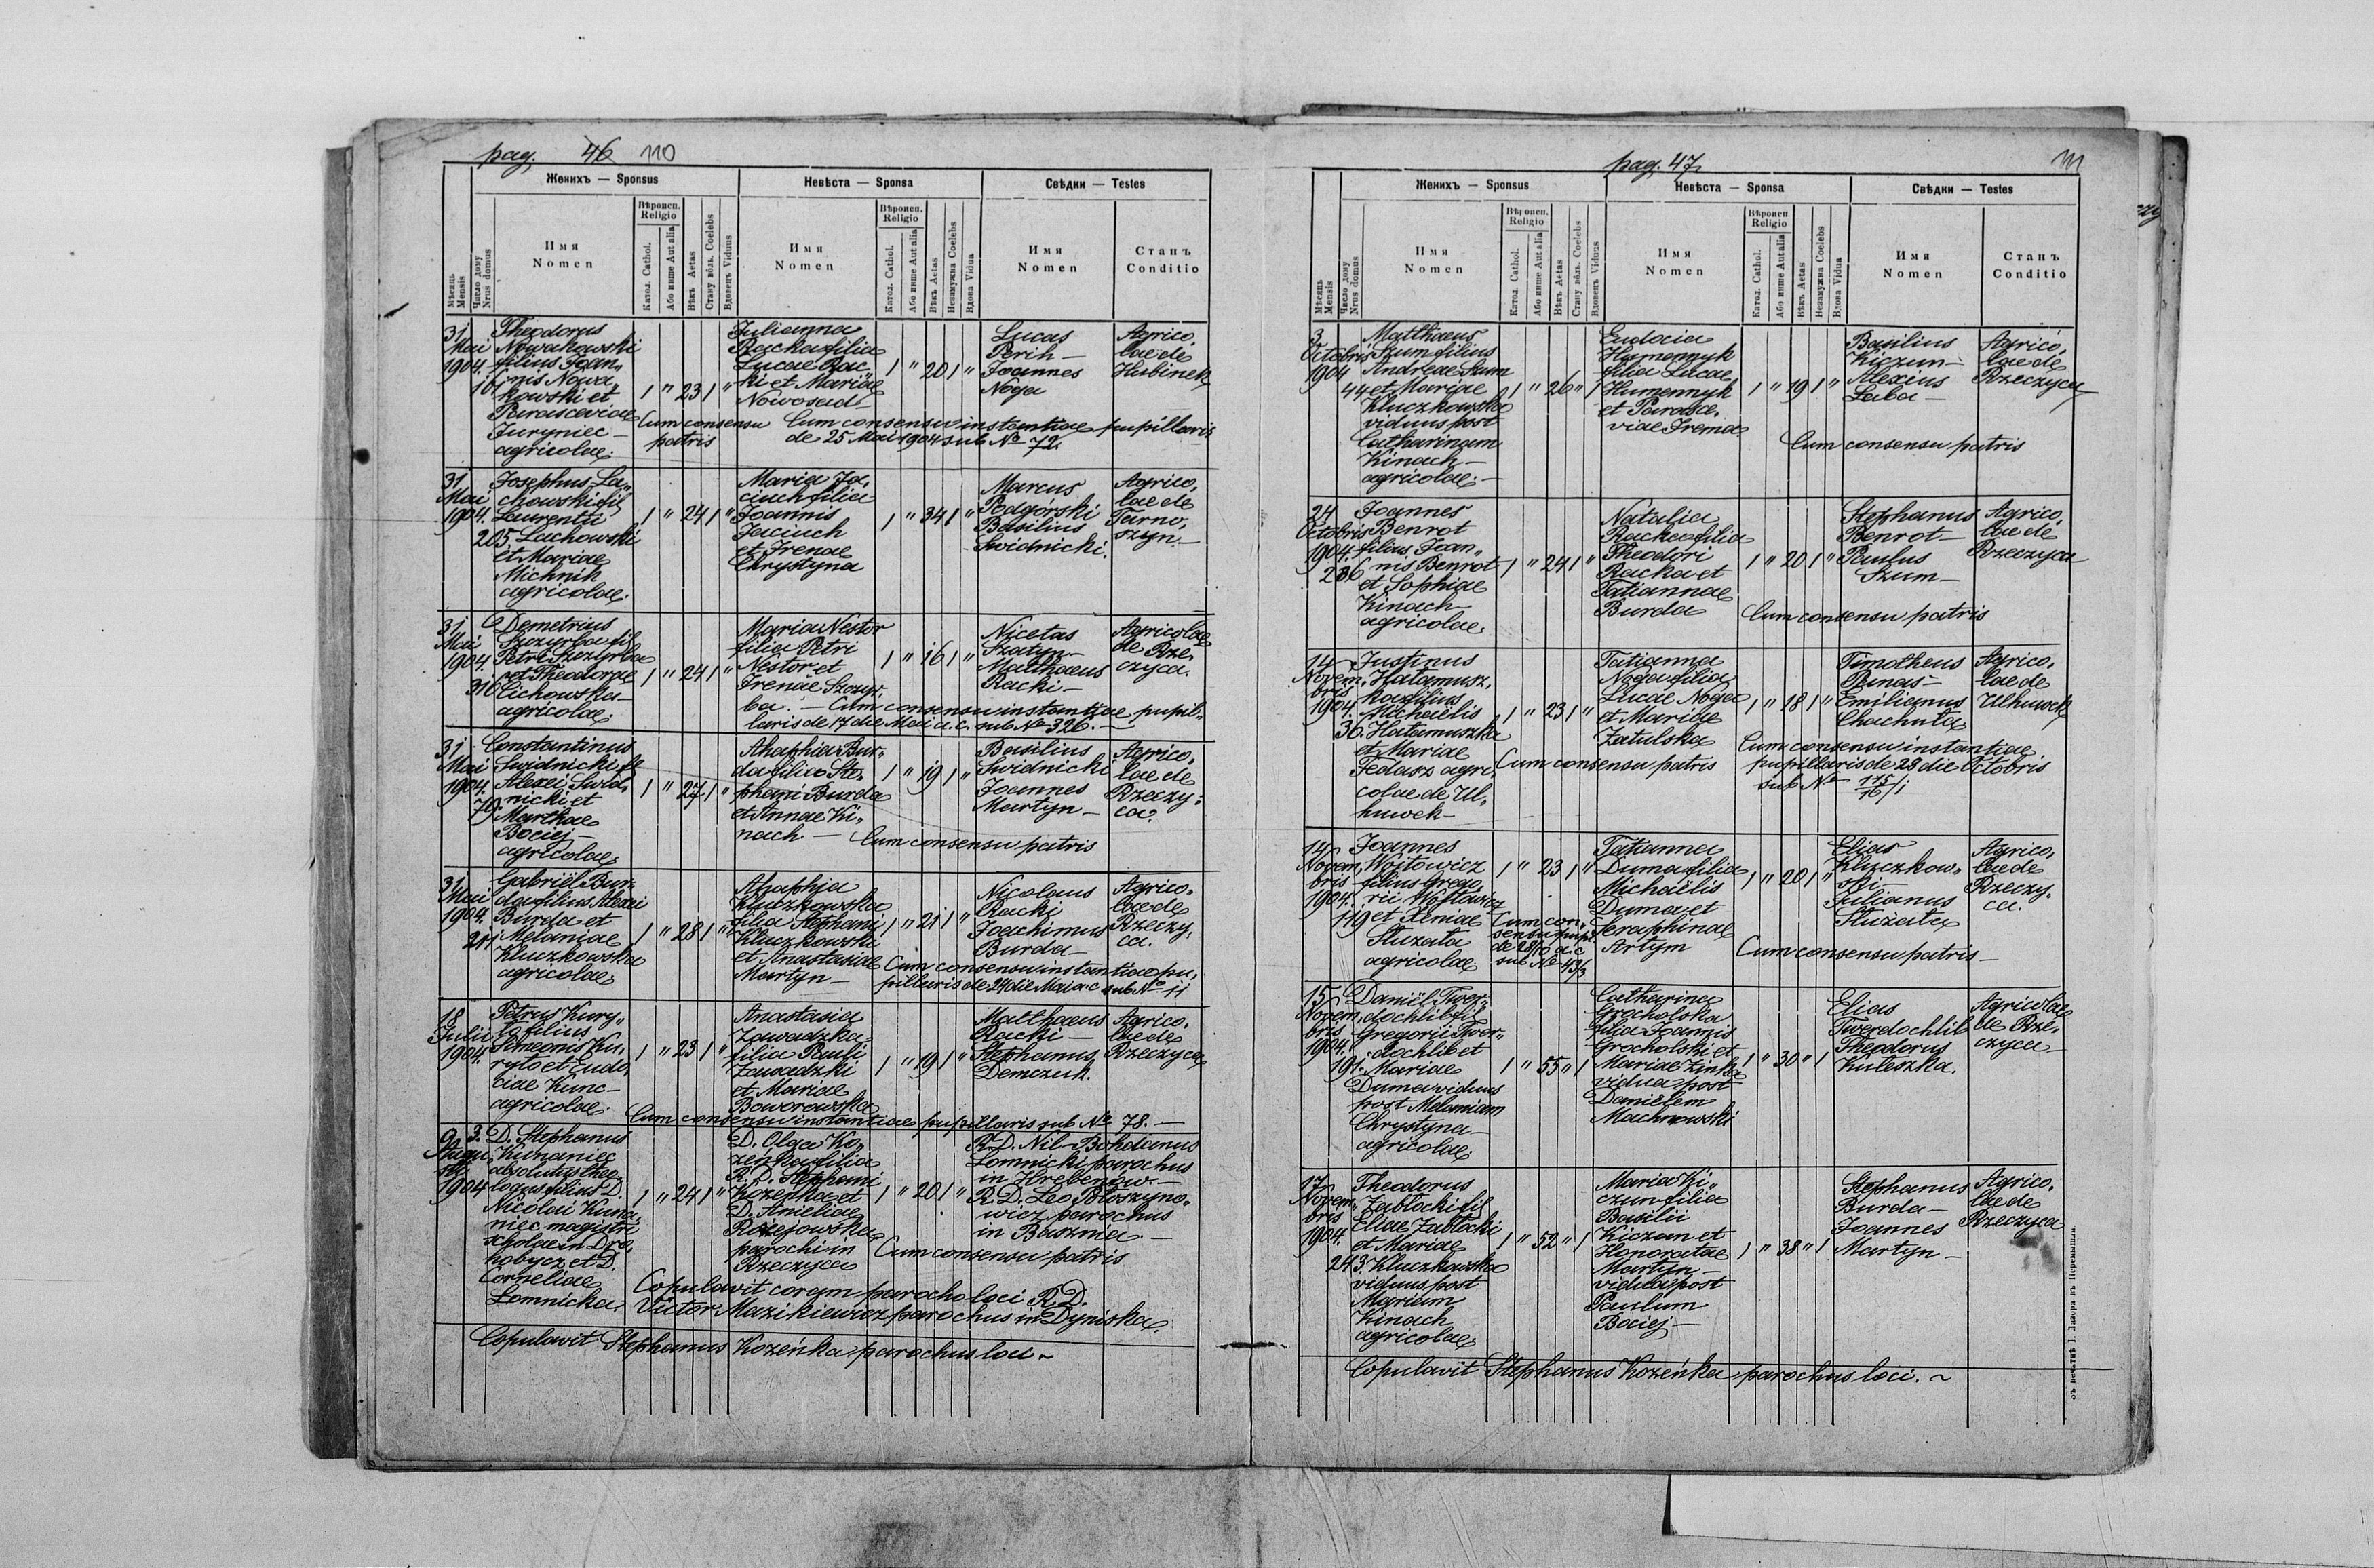 pag. 46 110
Женихъ — Sponsus
Невѣста — Sponsa
Свѣдки — Testes
Мѣсяць Mensis
Число дому Nrus domus
Имя Nomen
Вѣроисп. Religio
Катол. Cathol.
Або инше Aut alia
Вѣкъ Aetas
Стану вôльн. Coelebs
Вдовецъ Viduus
Имя Nomen
Вѣроисп. Religio
Катол. Cathol.
Або инше Aut alia
Вѣкъ Aetas
Незамужна Coelebs
Вдова Vidua
Имя Nomen
Станъ Conditio
31 Mai 1904.
101
Theodorus
Nowakowski
filius Joan„
nis Nowa„
kowski et
Parasceviae
Juryniec —
agricolae.
1 " 23 1 "
Cum consensu
patris
Julianna
Racka filia
Lucae Rac„
ki et Mariae
Nowosad —
1 " 20 1 "
Lucas
Perih —
Joannes
Noga
Agrico„
lae de
Hubinek
Cum consensu instantiae pupillaris
de 25 Mai 1904 sub No 72.
31 Mai 1904.
205
Josephus La„
chowski fil.
Laurentii
Lachowski
et Mariae
Michnik
agricolae.
1 " 24 1 "
Maria Ja„
ciuch filia
Joannis
Jaciuch
et Irenae
Chrystyna
1 " 34 1 "
Marcus
Podgórski
Basilius
Swidnicki.
Agrico„
lae de
Tarno„
szyn —
31 Mai 1904.
316
Demetrius
Szczyrba fil.
Petri Szczyrba
et Theodorae
Cichowska —
agricolae.
1 " 24 1 "
Maria Nestor
filia Petri
Nestor et
Irenae Szczyr„
ba. — Cum consensu instantiae pupil„
laris de 17 die Mai a. c. sub No 326. —
1 " 16 1 "
Nicetas
Szatyn —
Matthaeus
Racki —
Agricolae
de Rze„
czyca.
31 Mai 1904.
79
Constantinus
Swidnicki fil.
Alexii Swid„
nicki et
Marthae
Bociej —
agricolae.
1 " 27 1 "
Ahaphia Bur„
da filia Ste„
phani Burda
et Annae Ki„
nach. — Cum consensu patris
1 " 19 1 "
Basilius
Swidnicki
Joannes
Martyn —
Agrico„
lae de
Rzeczy„
ca.
31 Mai 1904.
211
Gabriël Bur„
da filius Alexii
Burda et
Melaniae
Kluczkowska
agricolae.
1 " 28 1 "
Ahaphja
Kluczkowska
filia Stephani
Kluczkowski
et Anastasiae
Martyn —
1 " 21 1 "
Nicolaus
Racki
Joachimus
Burda —
Agrico„
lae de
Rzeczy„
ca.
Cum consensu instantiae pu„
pillaris de 24 die Mai a. c. sub No 11
18 Julii 1904.
Petrus Kury„
to filius
Simeonis Ku„
ryto et Eudo„
ciae Kunc —
agricolae.
1 " 23 1 "
Anastasia
Zawadzka
filia Pauli
Zawadzki
et Mariae
Boworowska
1 " 19 1 "
Matthaeus
Racki —
Stephanus
Demczuk.
Agrico„
lae de
Rzeczyca
Cum consensu instantiae pupillaris sub No 78. —
9 Augu„ sti 1904
3.
D. Stephanus
Kunaniec
absolutus theo„
logus filius D.
Nicolai Kuna„
niec magistri
scholae in Dro„
hobycz et D.
Corneliae
Lomnicka.
1 " 24 1 "
D. Olga Ko„
zenka filia
R. D. Stephani
Kozeńka et
D. Ameliae
parochi in
Rzeczyca
1 " 20 1 "
R. D. Nil-Bohdanus
Lomnicki parochus
in Hrebenów. —
R. D. Leo
wicz parochus
in Basznia —
Cum consensu patris
Copulavit coram parocho loci R. D.
Victor Mazikiewicz parochus in Dyniska.
Copulavit Stephanus Kozeńka parochus loci ~
pag. 47. 111
Женихъ — Sponsus
Невѣста — Sponsa
Свѣдки — Testes
Мѣсяць Mensis
Число дому Nrus domus
Имя Nomen
Вѣроисп. Religio
Катол. Cathol.
Або инше Aut alia
Вѣкъ Aetas
Стану вôльн. Coelebs
Вдовецъ Viduus
Имя Nomen
Вѣроисп. Religio
Катол. Cathol.
Або инше Aut alia
Вѣкъ Aetas
Незамужна Coelebs
Вдова Vidua
Имя Nomen
Станъ Conditio
3 Octobris 1904
44
Matthaeus
Szum filius
Andreae Szum
et Mariae
Kluczkowska
viduus post
Catharinam
Kinach —
agricolae. —
1 " 26 " 1
Eudocia
Humennyk
filia Lucae
Humennyk
et Parasce„
viae Jrema.
1 " 19 1 "
Basilius
Kiczun —
Alexius
Laba —
Agrico„
lae de
Rzeczyca
Cum consensu patris
24 Octobris 1904.
236
Joannes
Benrot
filius Joan„
nis Benrot
et Sophiae
Kinach
agricolae.
1 " 24 1 "
Natalia
Racka filia
Theodori
Racka et
Tatiannae
Burda
1 " 20 1 "
Stephanus
Benrot —
Paulus
Szum —
Agrico„
lae de
Rzeczyca
Cum consensu patris
14 Novem„ bris 1904.
36.
Justinus
Hatamusz„
ka filius
Michaëlis
Hatamuszka
et Mariae
Fedasz agri„
colae de Ul„
huwek —
1 " 23 1 "
Cum consensu patris
Tatianna
Noga filia
Lucae Noga
et Mariae
Zatulska
1 " 18 1 "
Timotheus
Punas —
Emilianus
Chachuta
Agrico„
lae de
Ulhuwek
Cum consensu instantiae
pupillaris de 28 die Octobris
sub No 175/16/1
14 Novem„ bris 1904.
119
Joannes
Wojtowicz
filius Grego„
rii Wojtowicz
et Xeniae
Stuzata
agricolae
1 " 23 1 "
Cum con„
sensu pupil.
de 28/10 a. c.
Tatianna
Duma filia
Michaëlis
Duma et
Seraphinae
Artym
1 " 20 1 "
Elias
Kluczkow„
ski —
Julianus
Stuzata
Agrico„
lae de
Rzeczy„
ca.
Cum consensu patris —
15 Novem„ bris 1904.
191.
Daniël Twer„
dochlib fil.
Gregorii Twer„
dochlib et
Mariae
Duma viduus
post Melaniam
Chrystyna —
agricolae.
1 " 55 " 1
Catharina
Grocholska
filia Joannis
Grocholski et
Mariae Zinka
vidua post
Daniëlem
Machnowski
1 " 30 " 1
Elias
Twerdochlib
Theodorus
Kuleszka.
Agricolae
de Rze„
czyca —
17 Novem„ bris 1904.
243.
Theodorus
Zabłocki fil.
Eliae Zabłocki
et Mariae
Kluczkowska
viduus post
Mariam
Kinach
agricolae.
1 " 52 " 1
Maria Ki„
czun filia
Basilii
Kiczun et
Honoratae
Martyn —
vidua post
Paulum
Bociej —
1 " 38 " 1
Stephanus
Burda —
Joannes
Martyn —
Agrico„
lae de
Rzeczyca
Copulavit Stephanus Kozeńka parochus loci. ~